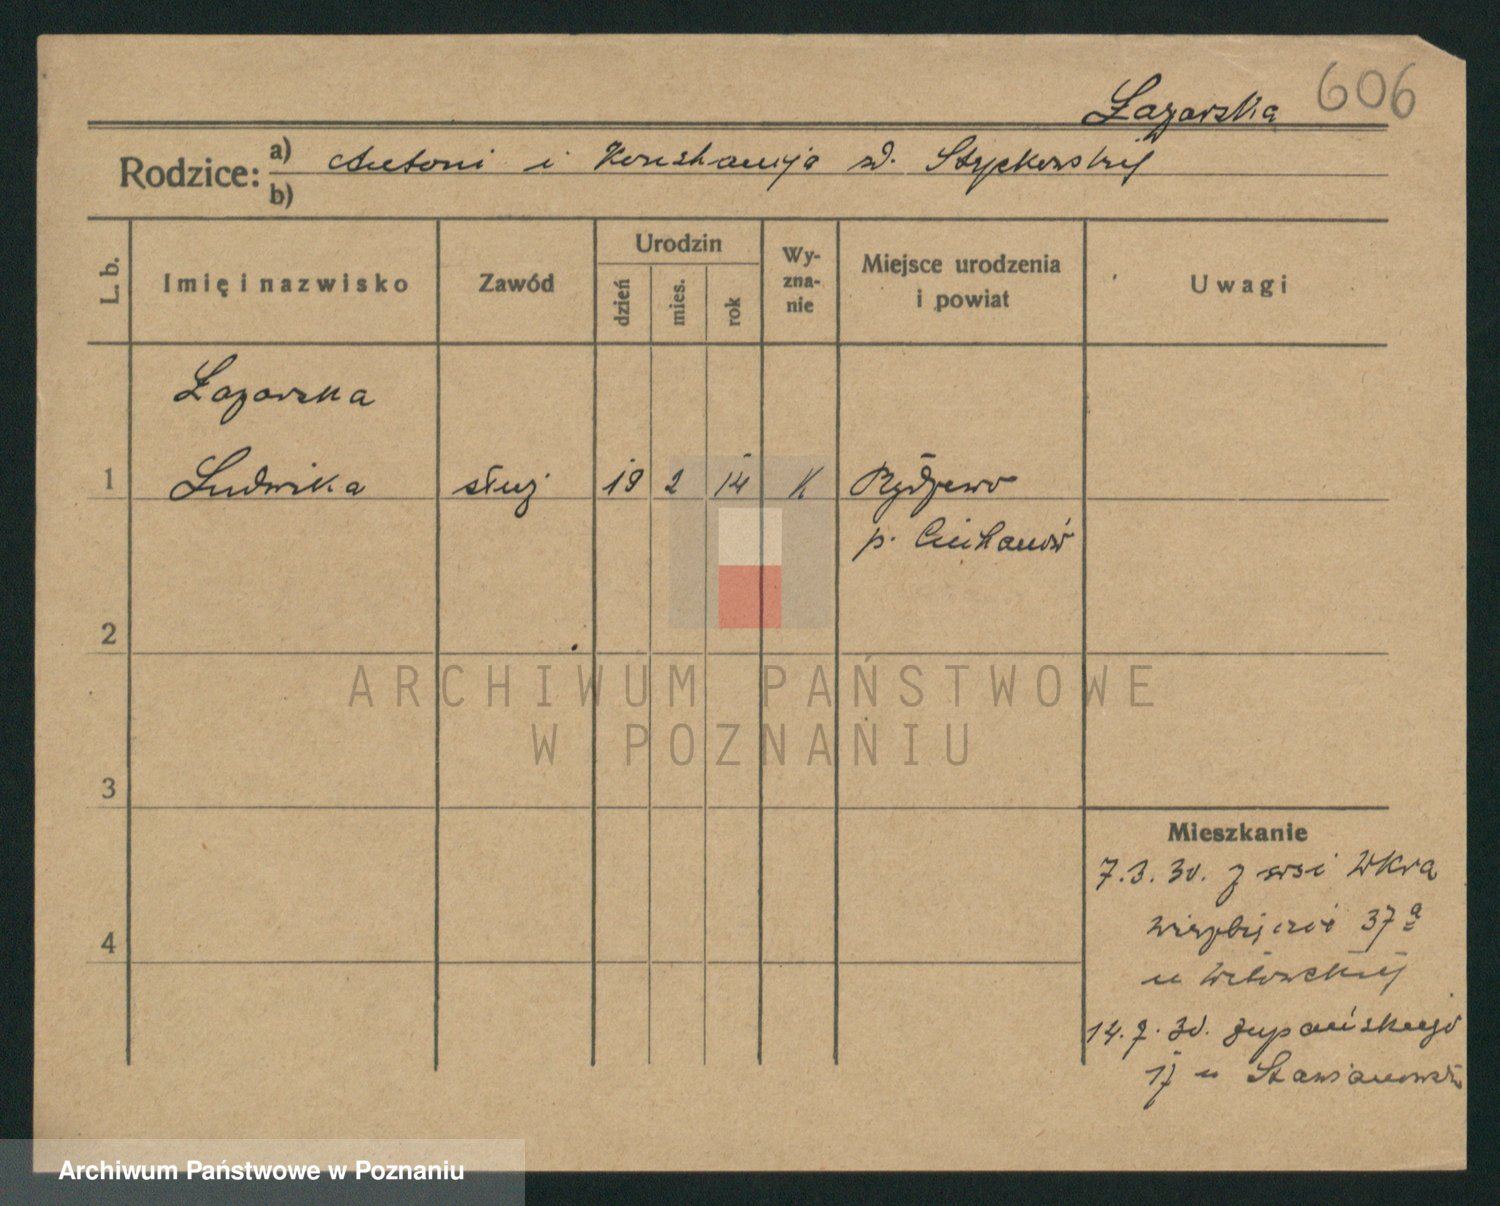 606
Łazarska
Rodzice: a) Antoni i Konstancja z d. Stryckowskiej
b)
L. b. Imię i nazwisko Zawód Urodzin dzień mies. rok Wyznanie Miejsce urodzenia i powiat Uwagi
Łazarska
1 Ludwika służ 19 2 14 K
p. Ciechanów
2
ARCHIWUM PAŃSTWOWE
W POZNANIU
3
Mieszkanie
7.3.30. z wsi Wkra
4 Wierzbięcice 37a
u
14.7.30. Żupańskiego
17 u
Archiwum Państwowe w Poznaniu